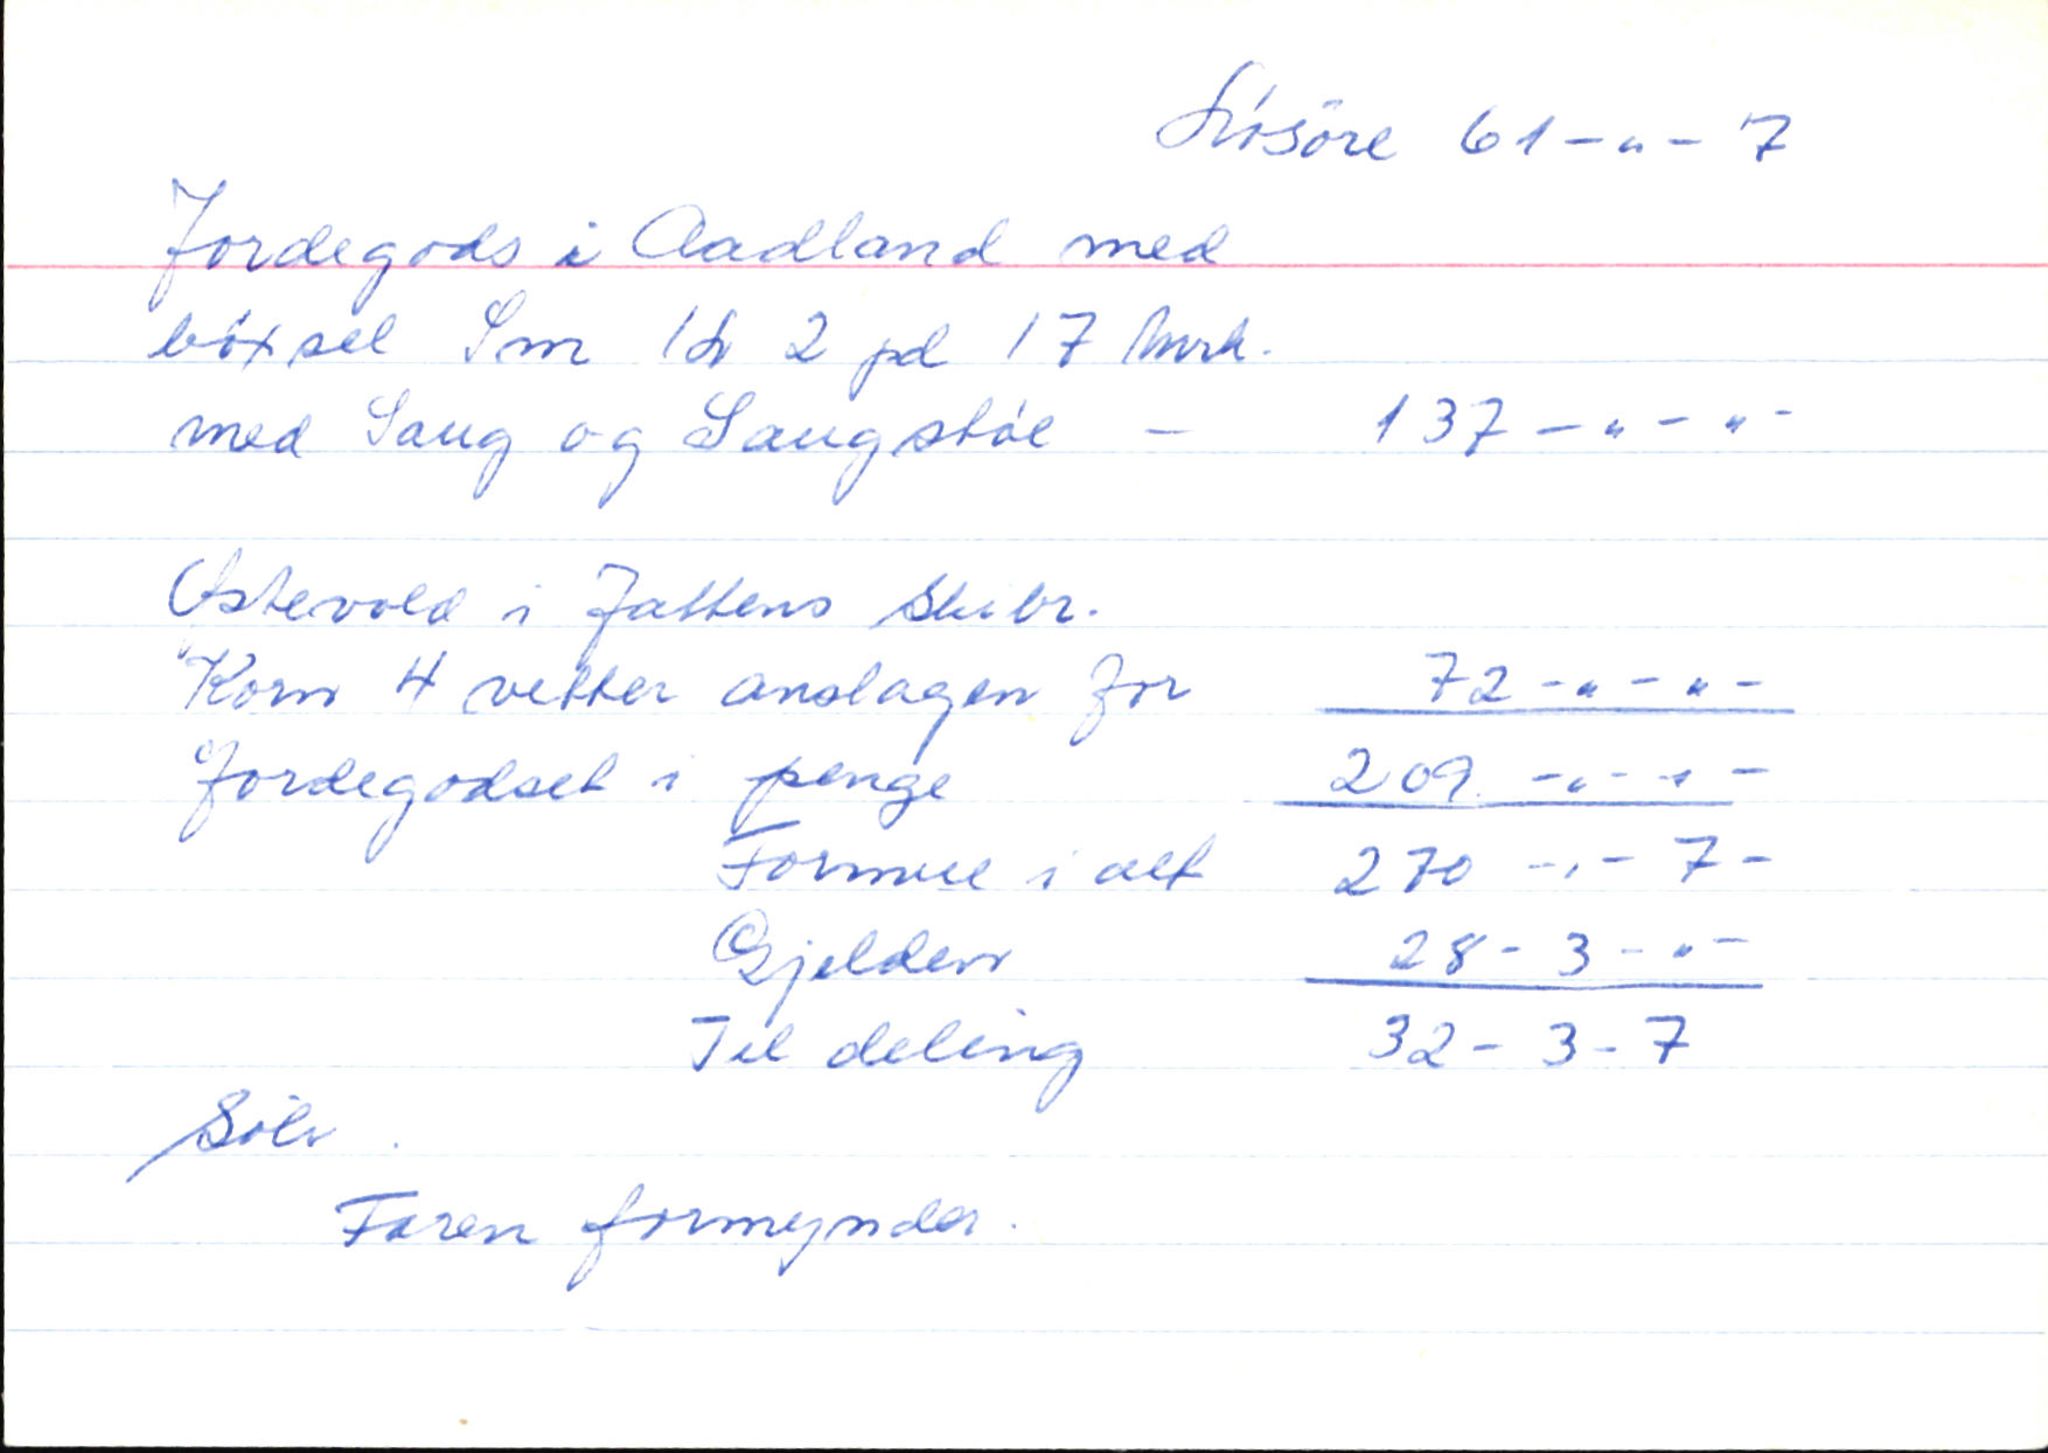 Lösöre 61 - " - 7
Jordegods i Aadland med
böxsel Sm 1 2 pd 17 Mrk.
med Saug og Saugstöe - 137 - " - " -
Ostevold i Jattens Skibr.
Korn 4 vetter anslagen for 72 - " - " -
Jordegodset i penge 209 - " - " -
Formue i alt 270 - " - 7 -
Gjelden 28 - 3 - " -
Til deling 32 - 3 - 7
Sölv.
Faren formynder.